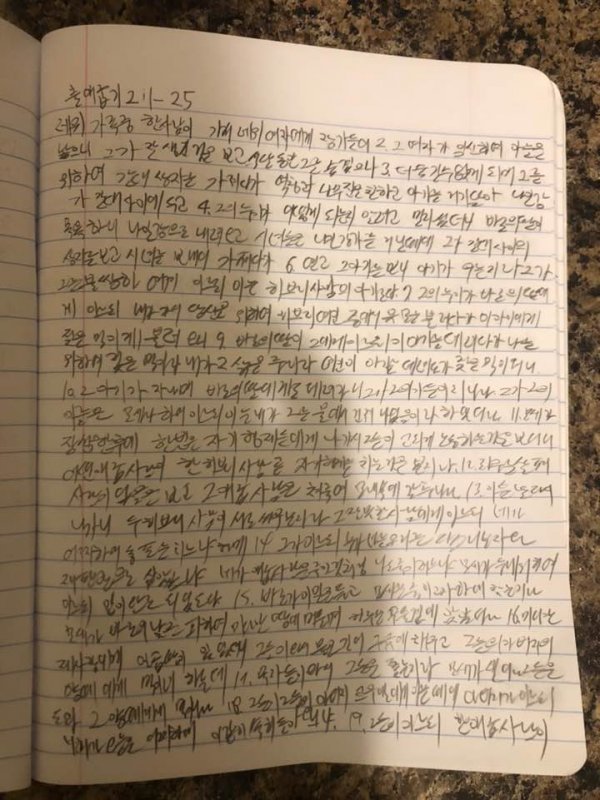 출애굽기 2:1-25
레위 가족중 한사람이 가서 레위 여자에게 장가들어 2 그 여자가 잉신하여 아들을
낳으니 그가 잘 생긴 것을 보고 석달 동안 그를 숨겼으나 3 더 숨길수 없게 되매 그를
위하여 갈대 상자를 가져다가 역청과 나무진을 칠하고 아기를 거기 담아 나일강
가 갈대 사이에 두고 4. 그의 누이가 어떻게 되는지 알려고 멀리 섰더니 바로의 딸이
목욕하러 나일강으로 내려오고 시녀들은 나일강가를 거닐때에 그가 갈대사이의
상자를 보고 시녀를 보내어 가져다가 6 열고 그 아기를 보니 아기가 우는지라 그가
그를 불쌍히 여겨 이르되 이는 히브리사람의 아기로다 7 그의 누이가 바로의 딸에
게 이르되 내가 가서 당신을 위하여 히브리 여인 중에서 유모를 불러다가 이 아기에게
젖을 먹이게 하리이까 9 바로의 딸이 그에게 이르되 이 아기를 데려다가 나를
위하여 젖을 먹이라 내가 그 삯을 주리라 여인이 아기를 데려다가 젖을 먹이더니
10. 그 아기가 자라매 바로의 딸에게로 데려가니 그가 그의 아들이 되니라 그가 그의
이름을 모세라 하여 이르되 이는 내가 그를 물에서 건져 내었음이라 하였더라 11. 모세가
장성한 후에 한번은 자기 형제들에게 나가서 그들이 고되게 노동하는 것을 보더니
어떤 애굽사람이 한 히브리 사람 곧 자기 형제를 치는 것을 본지라 12. 좌우를 살펴
사람이 없음을 보고 그 애굽 사람을 쳐죽여 모래속에 감추니라 13 이튿날 다시
나가니 두 히브리 사람이 서로 싸우는지라 그 잘못한 사람에게 이르되 네가
어찌하여 동포를 치느냐 하매 14 그가 이르되 누가 너를 우리를 다스리는 자와
재판관으로 삼았느냐 네가 애굽 사람을 죽인 것처럼 나도 죽이려느냐 모세가 두려워하여
이르되 일이 탄로 되었도다 15. 바로가 이 일을 듣고 모세를 죽이고자 하여 찾는지라
모세가 바로의 낯을 피하여 미디안 땅에 머물며 하루는 우물 곁에 앉았더라 16 미디안
제사장에게 일곱 딸이 있었더니 그들이 와서 물을 길어 구유에 채우고 그들의 아버지의
양떼에게 먹이려 하는데 17. 목자들이 와서 그들을 쫓는지라 모세가 일어나 그들을
도와 그 양떼에게 먹이니라 18 그들이 그들의 아버지 르우엘에게 이를 때에 아버지가 이르되
너희가 오늘은 어찌하여 이같이 속히 돌아오느냐. 19. 그들이 이르되 한 애굽 사람이